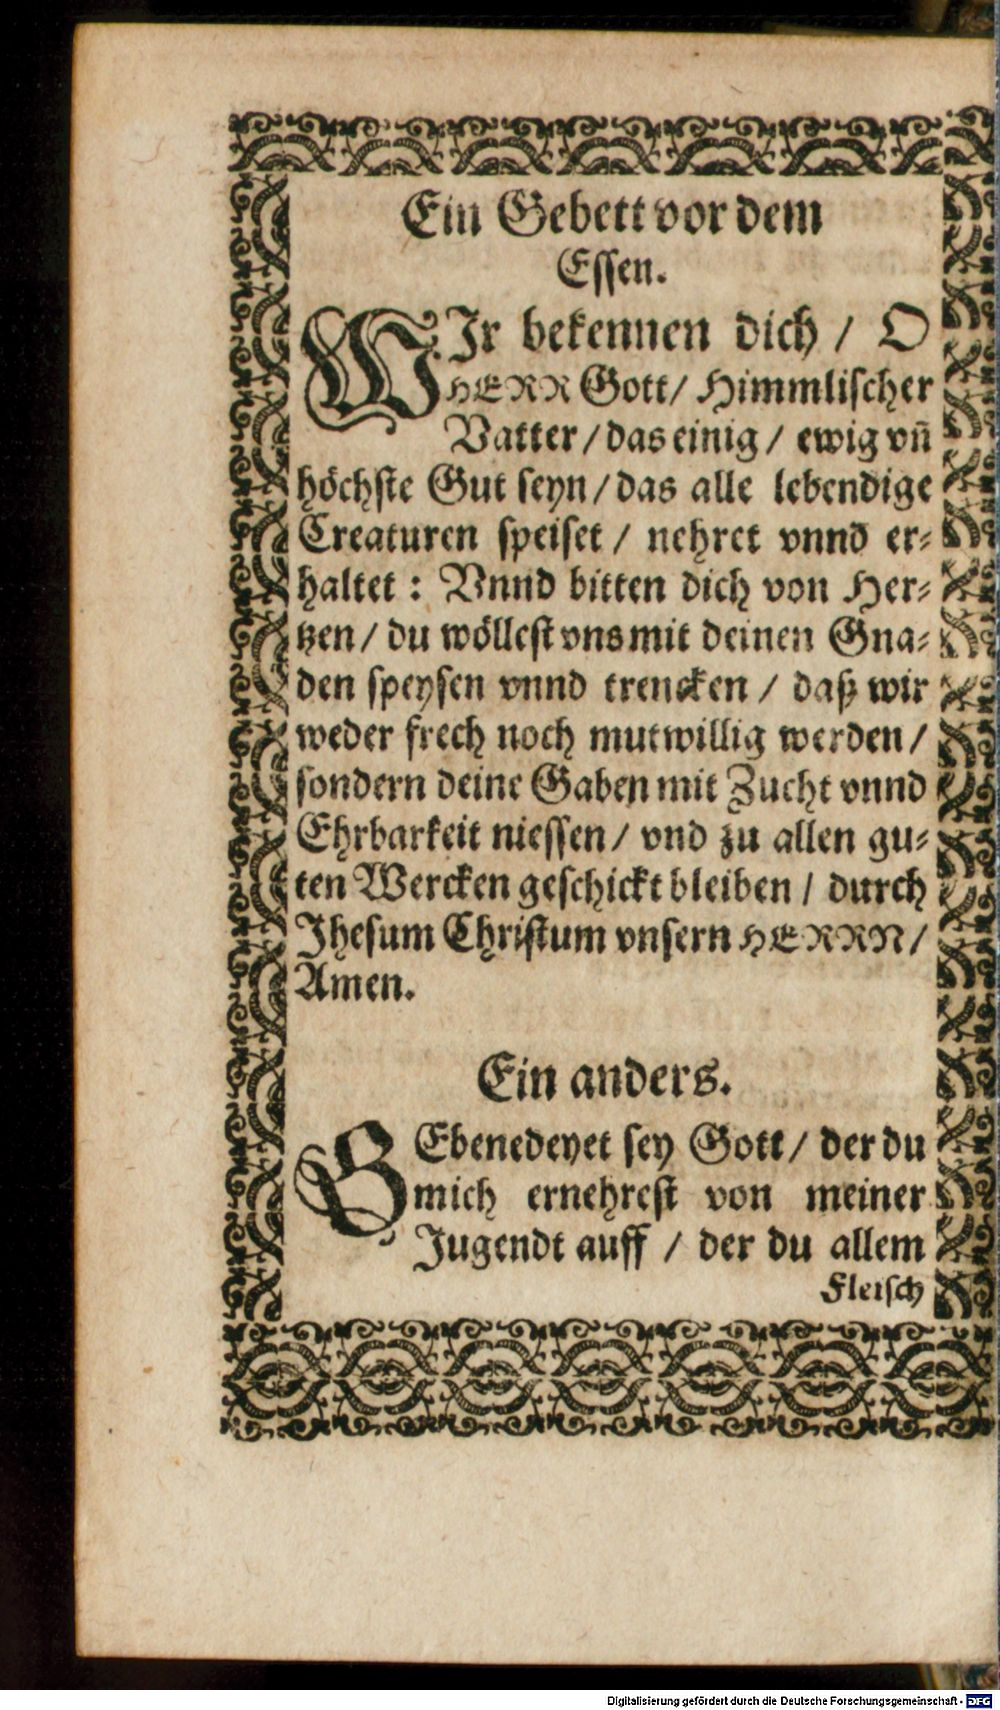 Ein Gebett vor dem
Essen.
WIr bekennen dich / O
HERR Gott / Himmlischer
Vatter / das einig / ewig vn̄
höchste Gut seyn / das alle lebendige
Creaturen speiset / nehret vnnd er-
haltet : Vnnd bitten dich von Her-
tzen / du wöllest vns mit deinen Gna-
den speysen vnnd trencken / daß wir
weder frech noch mutwillig werden /
sondern deine Gaben mit Zucht vnnd
Ehrbarkeit niessen / vnd zu allen gu-
ten Wercken geschickt bleiben / durch
Jhesum Christum vnsern HERRN /
Amen.
Ein anders.
GEbenedeyet sey Gott / der du
mich ernehrest von meiner
Jugendt auff / der du allem
Fleisch
Digitalisierung gefördert durch die Deutsche Forschungsgemeinschaft - DFG